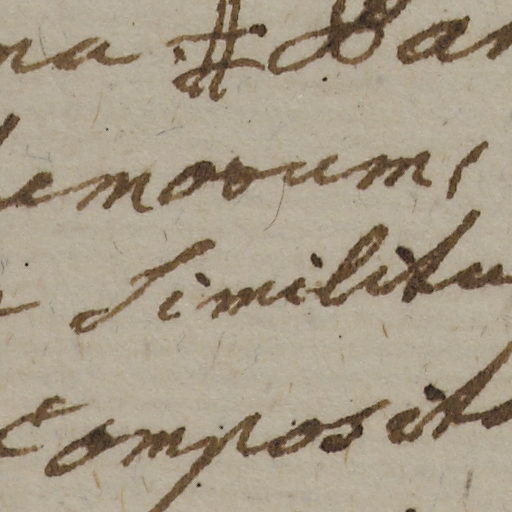 na ⋕ Dan
emorum,
Similitu
composit